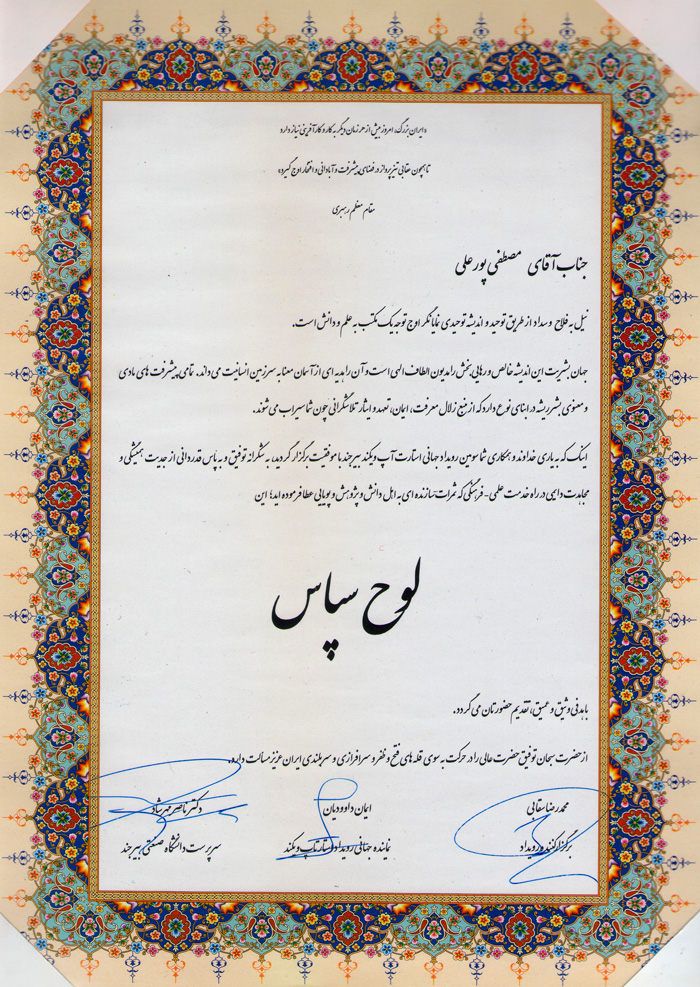 «ایران بزرگ، امروز بیش از هر زمان دیگر به کار و کارآفرینی نیاز دارد
تا همچون عقابی تیزپرواز در فضای پیشرفت و آبادانی و افتخار اوج گیرد»
مقام معظم رهبری
جناب آقای مصطفی پورعلی
نیل به فلاح و سداد از طریق توحید و اندیشه توحیدی نمایانگر اوج توجه یک مکتب به علم و دانش است.
جهان بشریت این اندیشه خالص و رهایی بخش را مدیون الطاف الهی است و آن را هدیه ای از آسمان معنا به سرزمین انسانیت می داند. تمامی پیشرفت های مادی
و معنوی بشر ریشه در ابنای نوع دارد که از منبع زلال معرفت، ایمان، تعهد و ایثار تلاشگرانی چون شما سیراب می شوند.
اینک که به یاری خداوند و همکاری شما سومین رویداد جهانی استارت آپ ویکند بیرجند با موفقیت برگزار گردید، به شکرانه توفیق و به پاس قدردانی از جدیت همیشگی و
مجاهدت دایمی در راه خدمت علمی - فرهنگی که ثمرات سازنده ای به اهل دانش و پژوهش و پویایی عطا فرموده اید؛ این
لوح سپاس
با هدفی وثیق و عمیق، تقدیم حضورتان می گردد.
از حضرت سبحان توفیق حضرت عالی را در حرکت به سوی قله های فتح و ظفر و سرافرازی و سربلندی ایران عزیز مسألت دارد.
محمدرضا سقایی ایمان داوودیان دکتر ناصر مهرشاد
برگزارکننده رویداد نماینده جهانی رویداد استارتاپ ویکند سرپرست دانشگاه صنعتی بیرجند